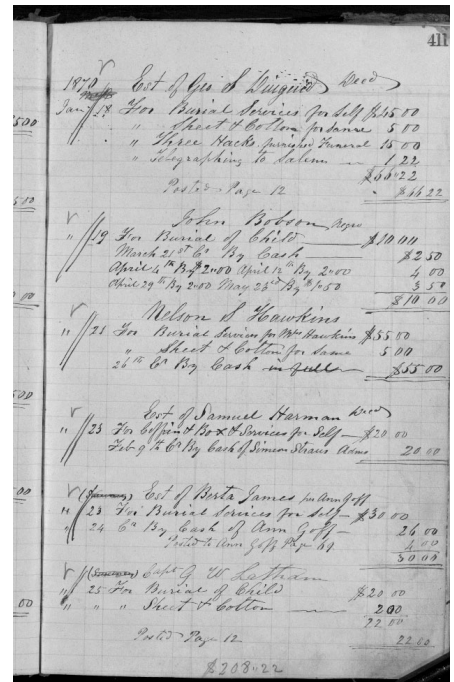 411
1870 Est of Geo S Diuguid Decd
Jany 18 For Burial Services for Self $45 00
" Sheet & Cotton for Same 5 00
" Three Hacks furnished Funeral 15 00
" Telegraphing to Salem 1,22
$66.22
Posted Page 12 $66 22
John Bobson Negro
" 19 For Burial of Child $10.00
March 21st Cr By Cash $2 50
April 4th By $2.00 April 12th By 2.00 4 00
April 29th By 2.00 May 23rd By $1.50 3 50
$10 00
Nelson S Hawkins
" 21 For Burial Services for Mrs Hawkins
" Sheet & Cotton for Same 5 00
26th Cr By Cash in full $55 00
Est of Samuel Harman Decd
" 23 For Coffin & Box & Services for Self $20 00
Feb 9th Cr By Cash of Simeon Straus Adms 20 00
Est of Berta James per Ann Goff
" 23 For Burial Services for Self $30 00
" 24 Cr By Cash of Ann Goff 26 00
Posted to Ann Goff Page 4 00
30 00
Capt G W Latham
" 25 For Burial of Child $20.00
" " Sheet & Cotton 2 00
22 00
Posted Page 12 22 00
$308.22